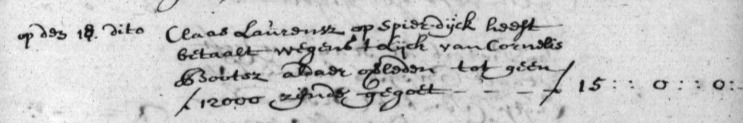 op den 18 dito Claas Laurensz op Spierdijck heeft
betaalt wegens 't Lijck van Cornelis
Bootsz aldaer overleden tot geen
/ 12000 zijnde gegoet - - - - / 15 : : 0 : : 0 :